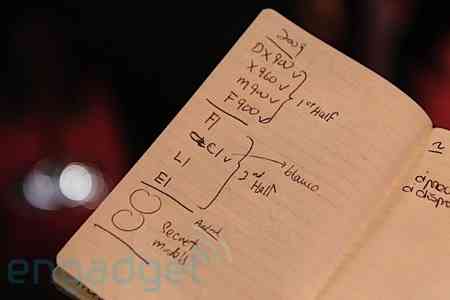 2009
DX900 ✓
X960 ✓
M900 ✓
F900 ✓
1st Half
F1
C1 ✓
L1
E1
2nd Half
blanco
Secret
models
engadget